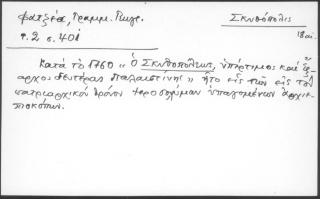 Φατζέα, Γραμμ. Πηγ.
τ. 2 σ. 401
Σκυθόπολις
18 αι.
Κατὰ τὸ 1760 « Ὁ Σκυθοπόλεως, ὑπέρτιμος καὶ ἔξ-
αρχος δευτέρας Παλαιστίνης » ἦτο εἷς τῶν εἰς τὸν
πατριαρχικὸν θρόνον Ἱεροσολύμων ὑπαγομένων ἀρχιε-
πισκόπων.